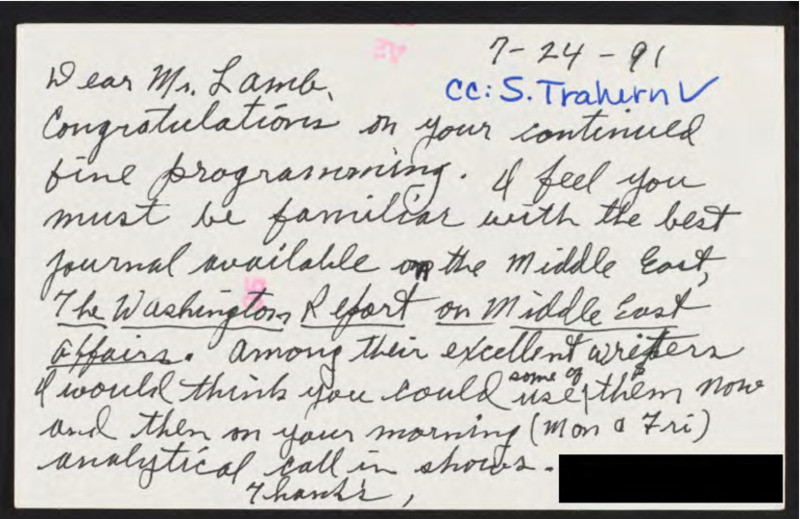 7-24-91
cc: S. Trahern ✓
Dear Mr. Lamb,
Congratulations on your continued
fine programming. I feel you
must be familiar with the best
journal available on the Middle East,
The Washington Report on Middle East
Affairs. Among their excellent writers
I would think you could use some of them now
and then on your morning (Mon & Fri)
analytical call in shows.
Thanks,